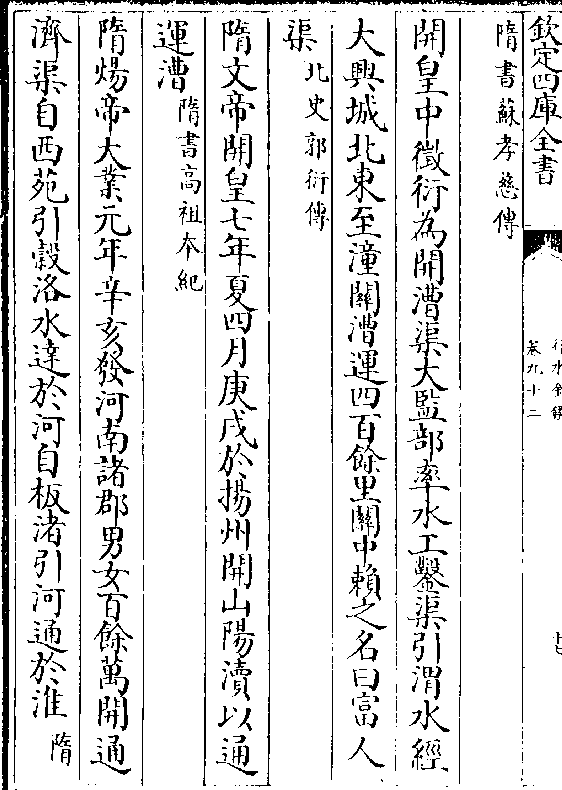 欽定四庫全書
行水金鑑
卷九十二
十七
隋書蘇孝慈傳
開皇中徵衍為開漕渠大監部率水工鑿渠引渭水經
大興城北東至潼關漕運四百餘里關中賴之名曰富人
渠北史郭衍傳
隋文帝開皇七年夏四月庚戌於揚州開山陽瀆以通
運漕隋書高祖本紀
隋煬帝大業元年辛亥發河南諸郡男女百餘萬開通
濟渠自西苑引穀洛水達於河自板渚引河通於淮隋